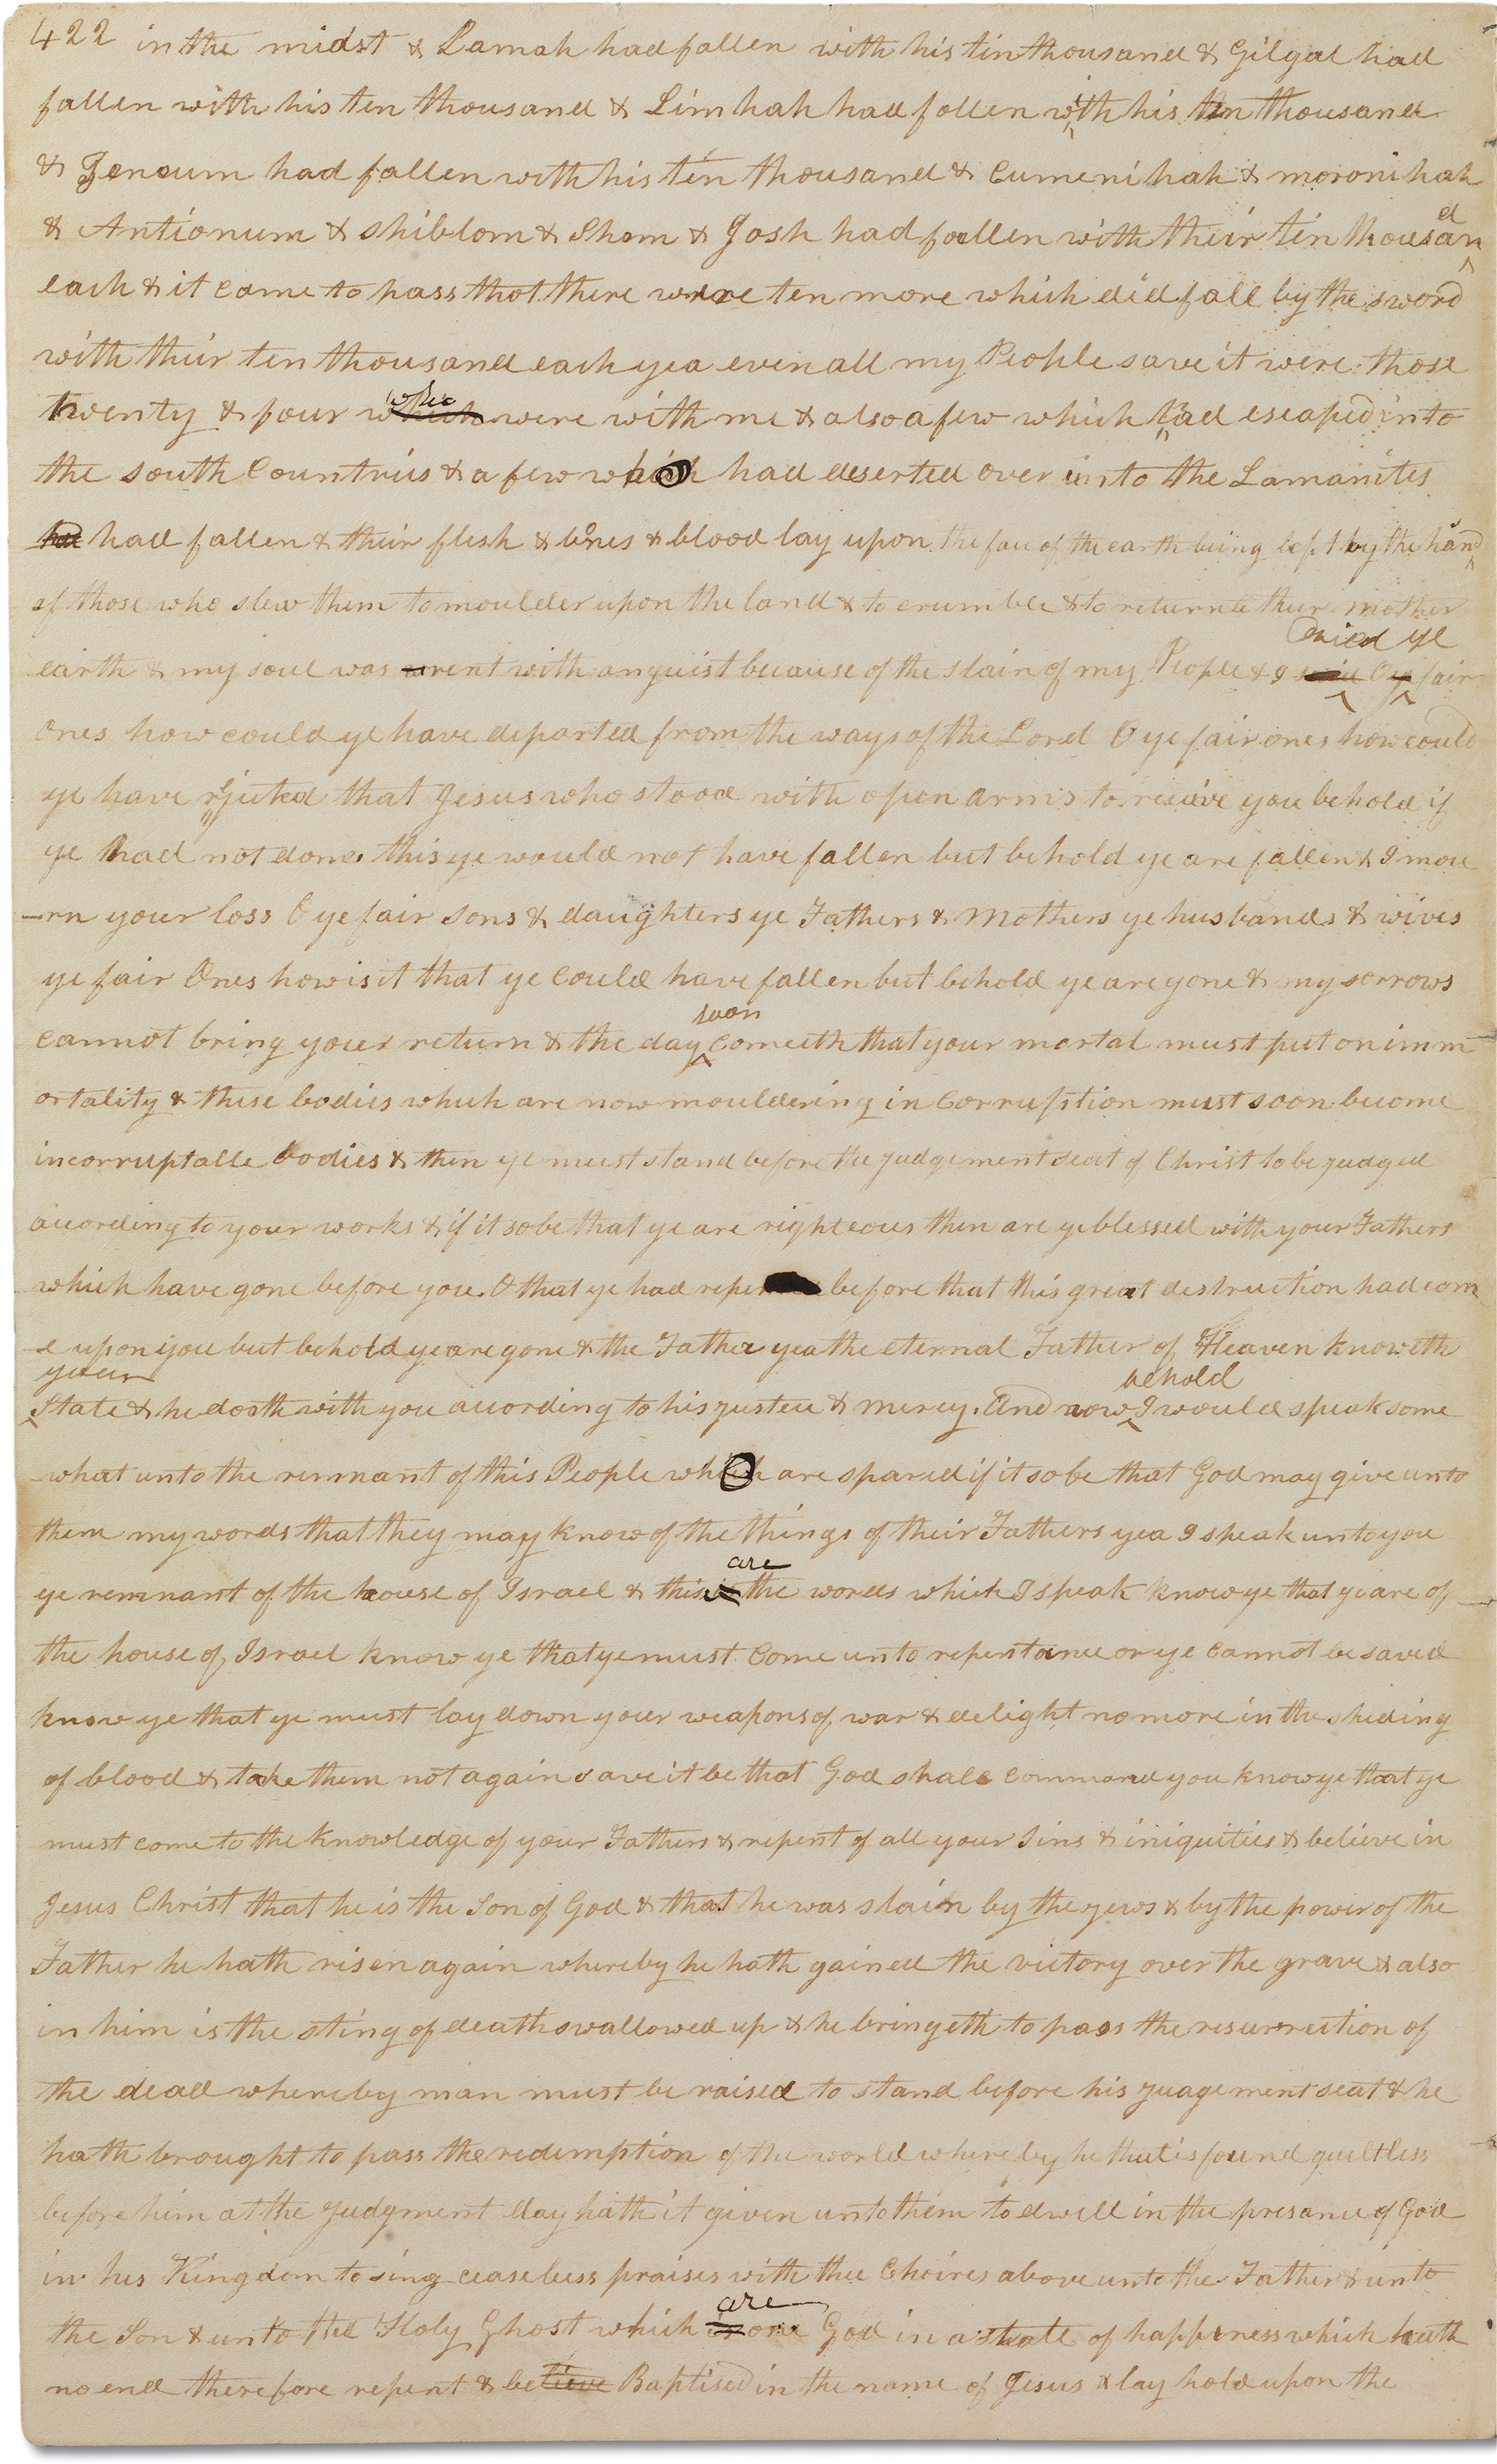 422 in the midst & Lamah had fallen with his tin thousand & Gilgal had
fallen with his ten thousand & Limhah had fallen with his ten thousand
& Jeneum had fallen with his ten thousand & Cumenihah & moronihah
& Antionum & shiblom & Shem & Josh had fallen with their ten thousand
each & it came to pass that there were ten more which did fall by the sword
with their ten thousand each yea even all my People save it were those
twenty & four which who were with me & also a few which had escaped into
the south Countries & a few which had deserted over unto the Lamanites
had fallen & their flesh & bones & blood lay upon the face of the earth being left by the hand
of those who slew them to moulder upon the land & to crumble & to return to their mother
cried ye
earth & my soul was rent with anguist because of the slain of my People & I said O ye fair
Ones how could ye have departed from the ways of the Lord O ye fair ones how could
ye have rejected that Jesus who stood with open arms to recieve you behold if
ye had not done this ye would not have fallen but behold ye are fallen & I mou
-rn your loss O ye fair sons & daughters ye Fathers & Mothers ye husbands & wives
ye fair Ones how is it that ye could have fallen but behold ye are gone & my sorrows
soon
cannot bring your return & the day cometh that your mortal must put on imm
ortality & these bodies which are now mouldering in Corruption must soon become
incorruptable bodies & then ye must stand before the judgement seat of Christ to be judged
according to your works & if it so be that ye are righteous then are ye blessed with your Fathers
which have gone before you O that ye had repented before that this great destruction had com
-e upon you but behold ye are gone & the Father yea the eternal Father of Heaven knoweth
your behold
State & he doath with you according to his justice & mercy. And now I would speak some
what unto the remnant of this People which are spared if it so be that God may give unto
them my words that they may know of the things of their Fathers yea I speak unto you
are
ye remnant of the house of Israel & this is the words which I speak know ye that ye are of
the house of Israel know ye that ye must Come unto repentance or ye cannot be saved
know ye that ye must lay down your weapons of war & delight no more in the sheding
of blood & take them not again save it be that God shall command you know ye that ye
must come to the knowledge of your Fathers & repent of all your Sins & iniquities & believe in
Jesus Christ that he is the Son of God & that he was slain by the jews & by the power of the
Father he hath risen again whereby he hath gained the victory over the grave & also
in him is the sting of death swallowed up & he bringeth to pass the resurrection of
the dead whereby man must be raised to stand before his judgement seat & he
hath brought to pass the redemption of the world whereby he that is found guiltless
before him at the judgment day hath it given unto them to dwell in the presance of God
in his Kingdom to sing ceaseless praises with the Choires above unto the Father & unto
are
the Son & unto the Holy Ghost which is one God in a state of happiness which hath
no end therefore repent & believe Baptised in the name of Jesus & lay hold upon the